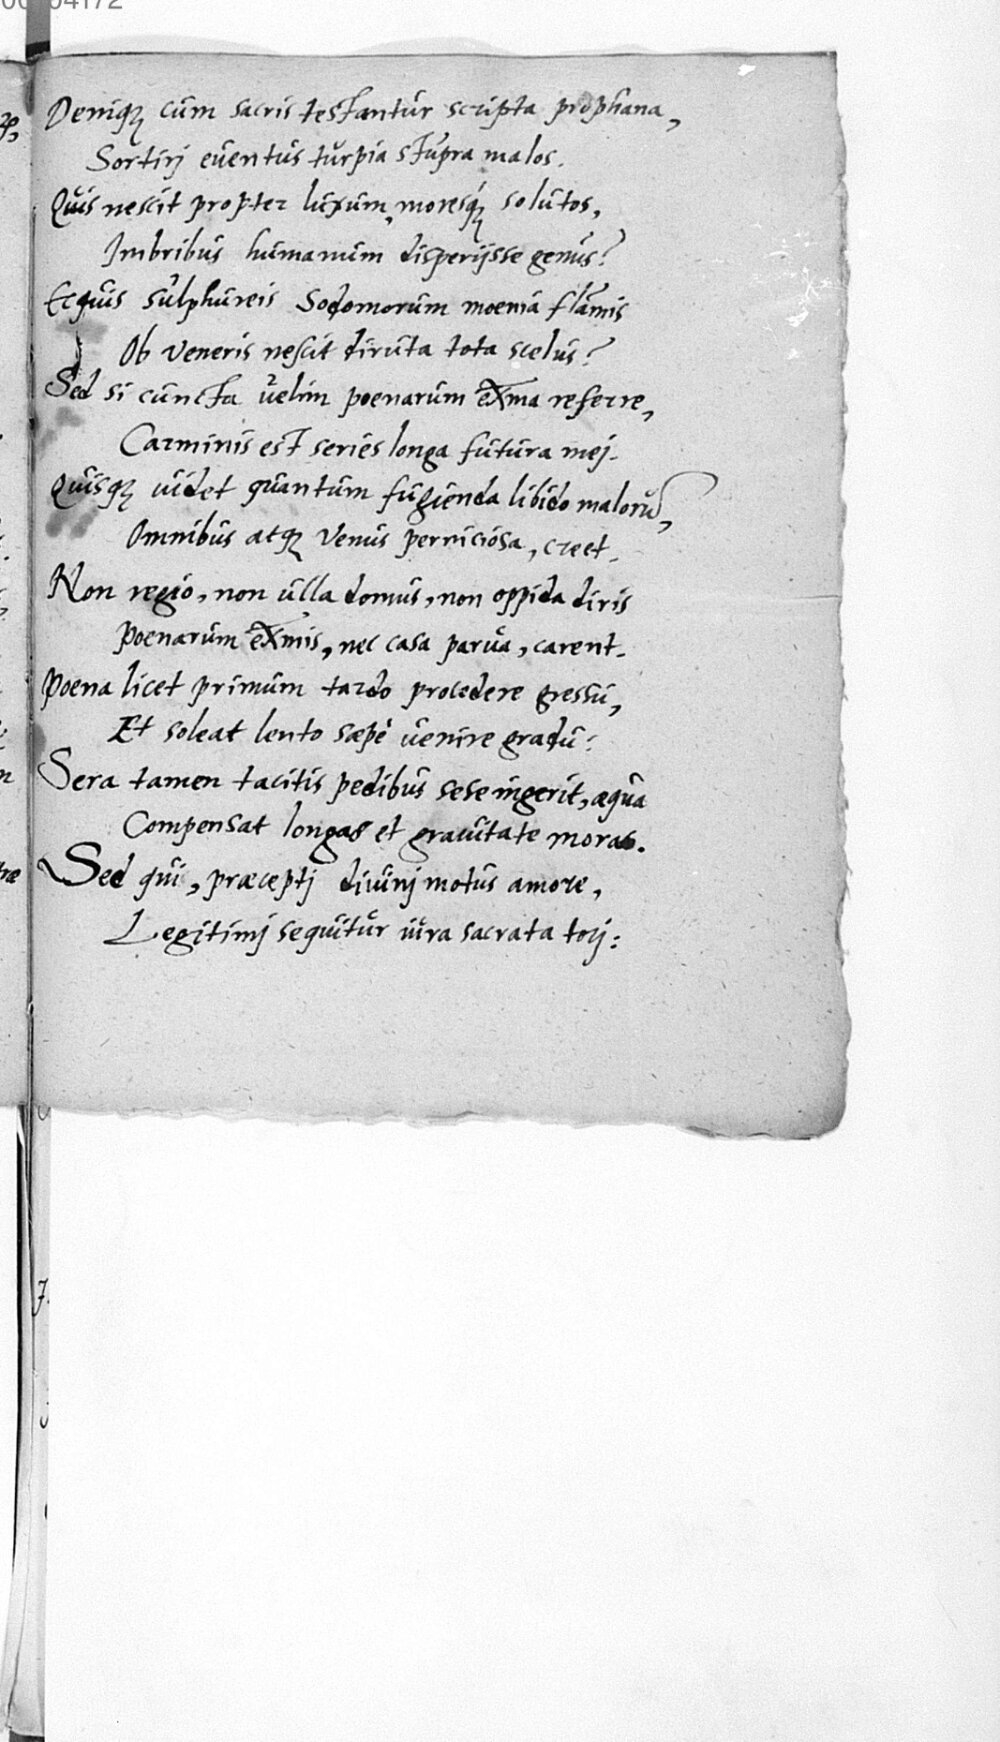 Deniq́ꝫ cùm sacris testantur scripta prophana,
Sortirj euentus turpia stupra malos.
Quis nescit propter luxum, moresq́ꝫ solutos,
Imbribus humanum disperijsse genus?
Ecquis sulphureis Sodomorum moenia flāmis
Ob Veneris nescit diruta tota scelus?
Sed si cuncta uelim poenarum exm̄a referre,
Carminis est series longa futura mej.
Quisqꝫ uidet quantum fugienda libido malorū,
Omnibus atqꝫ Venus perniciosa, creet.
Non regio, non ulla domus, non oppida diris
Poenarum exm̄is, nec casa parua, carent.
Poena licet primùm tardo procedere gressu,
Et soleat lento sæpè uenire gradu:
Sera tamen tacitis pedibus sese ingerit, æqua
Compensat longas et grauitate moras.
Sed qui, præceptj diuinj motus amore,
Legitimj sequitur iura sacrata torj: